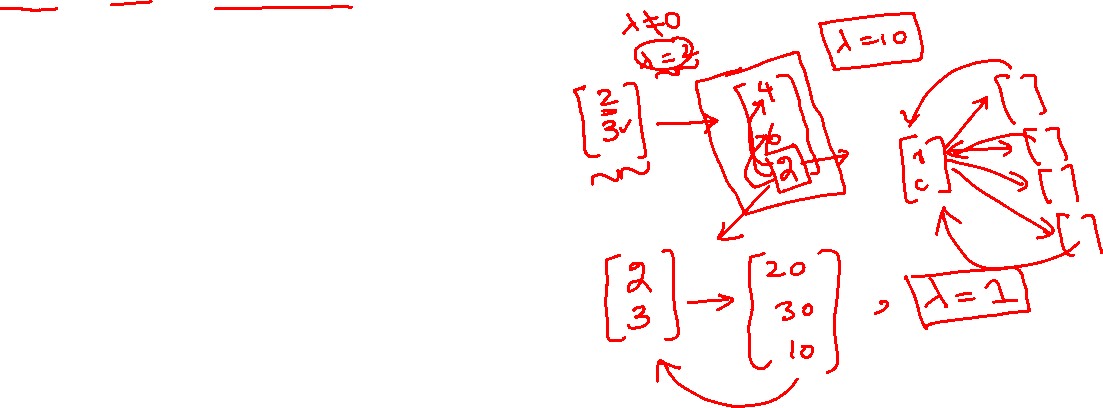 λ≠0
λ=2
λ=10
[2 3] → [4 6 2]
[2 3] → [20 30 10] , λ=1